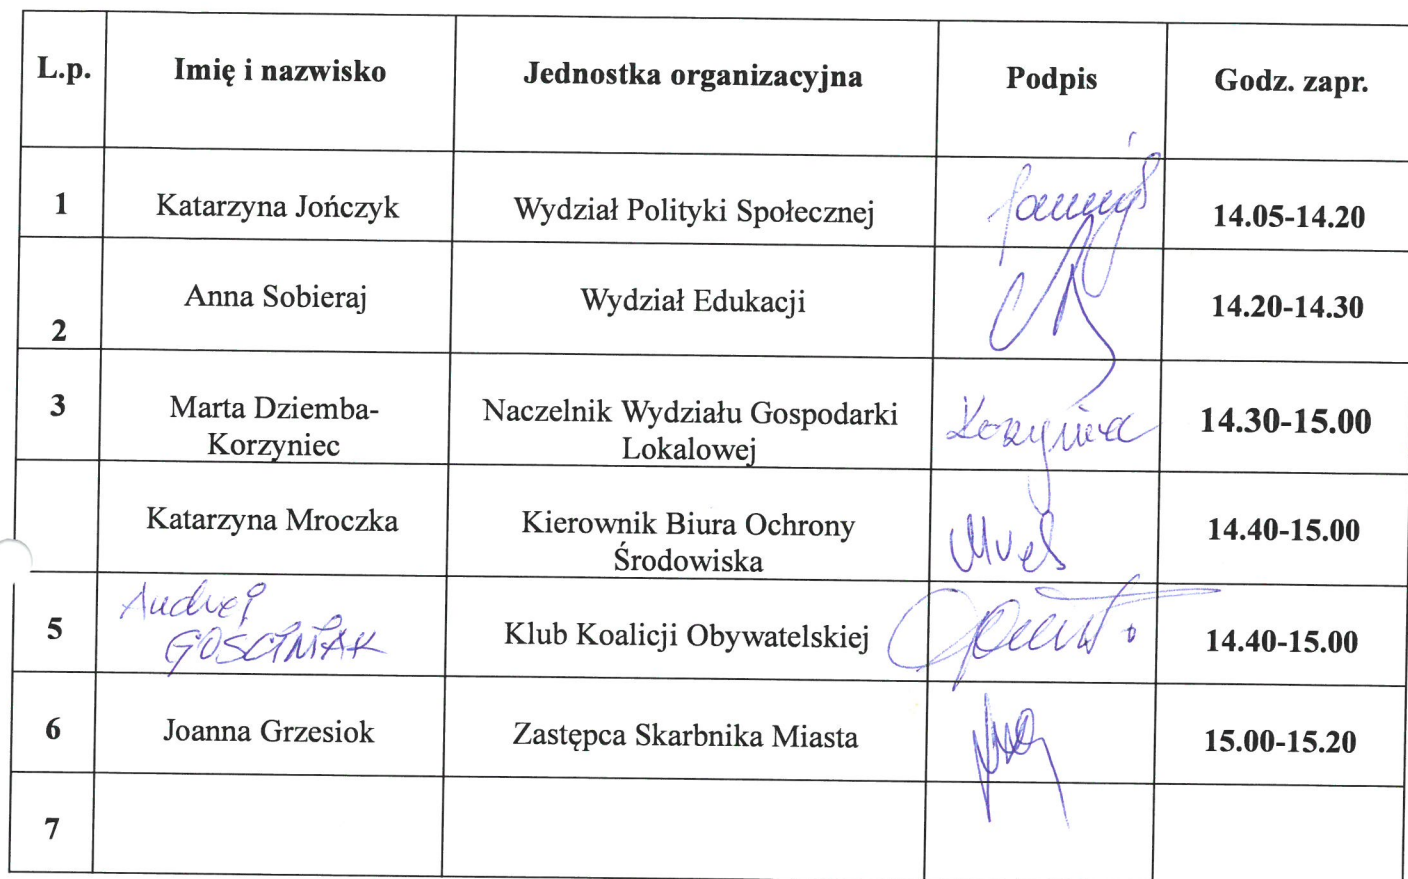 L.p. Imię i nazwisko Jednostka organizacyjna Podpis Godz. zapr.
1 Katarzyna Jończyk Wydział Polityki Społecznej 14.05-14.20
2 Anna Sobieraj Wydział Edukacji 14.20-14.30
3 Marta Dziemba- Naczelnik Wydziału Gospodarki Korzyniec 14.30-15.00
Korzyniec Lokalowej
Katarzyna Mroczka Kierownik Biura Ochrony 14.40-15.00
Środowiska
Andrzej
GOŚCINIAK
5 Klub Koalicji Obywatelskiej 14.40-15.00
6 Joanna Grzesiok Zastępca Skarbnika Miasta 15.00-15.20
7